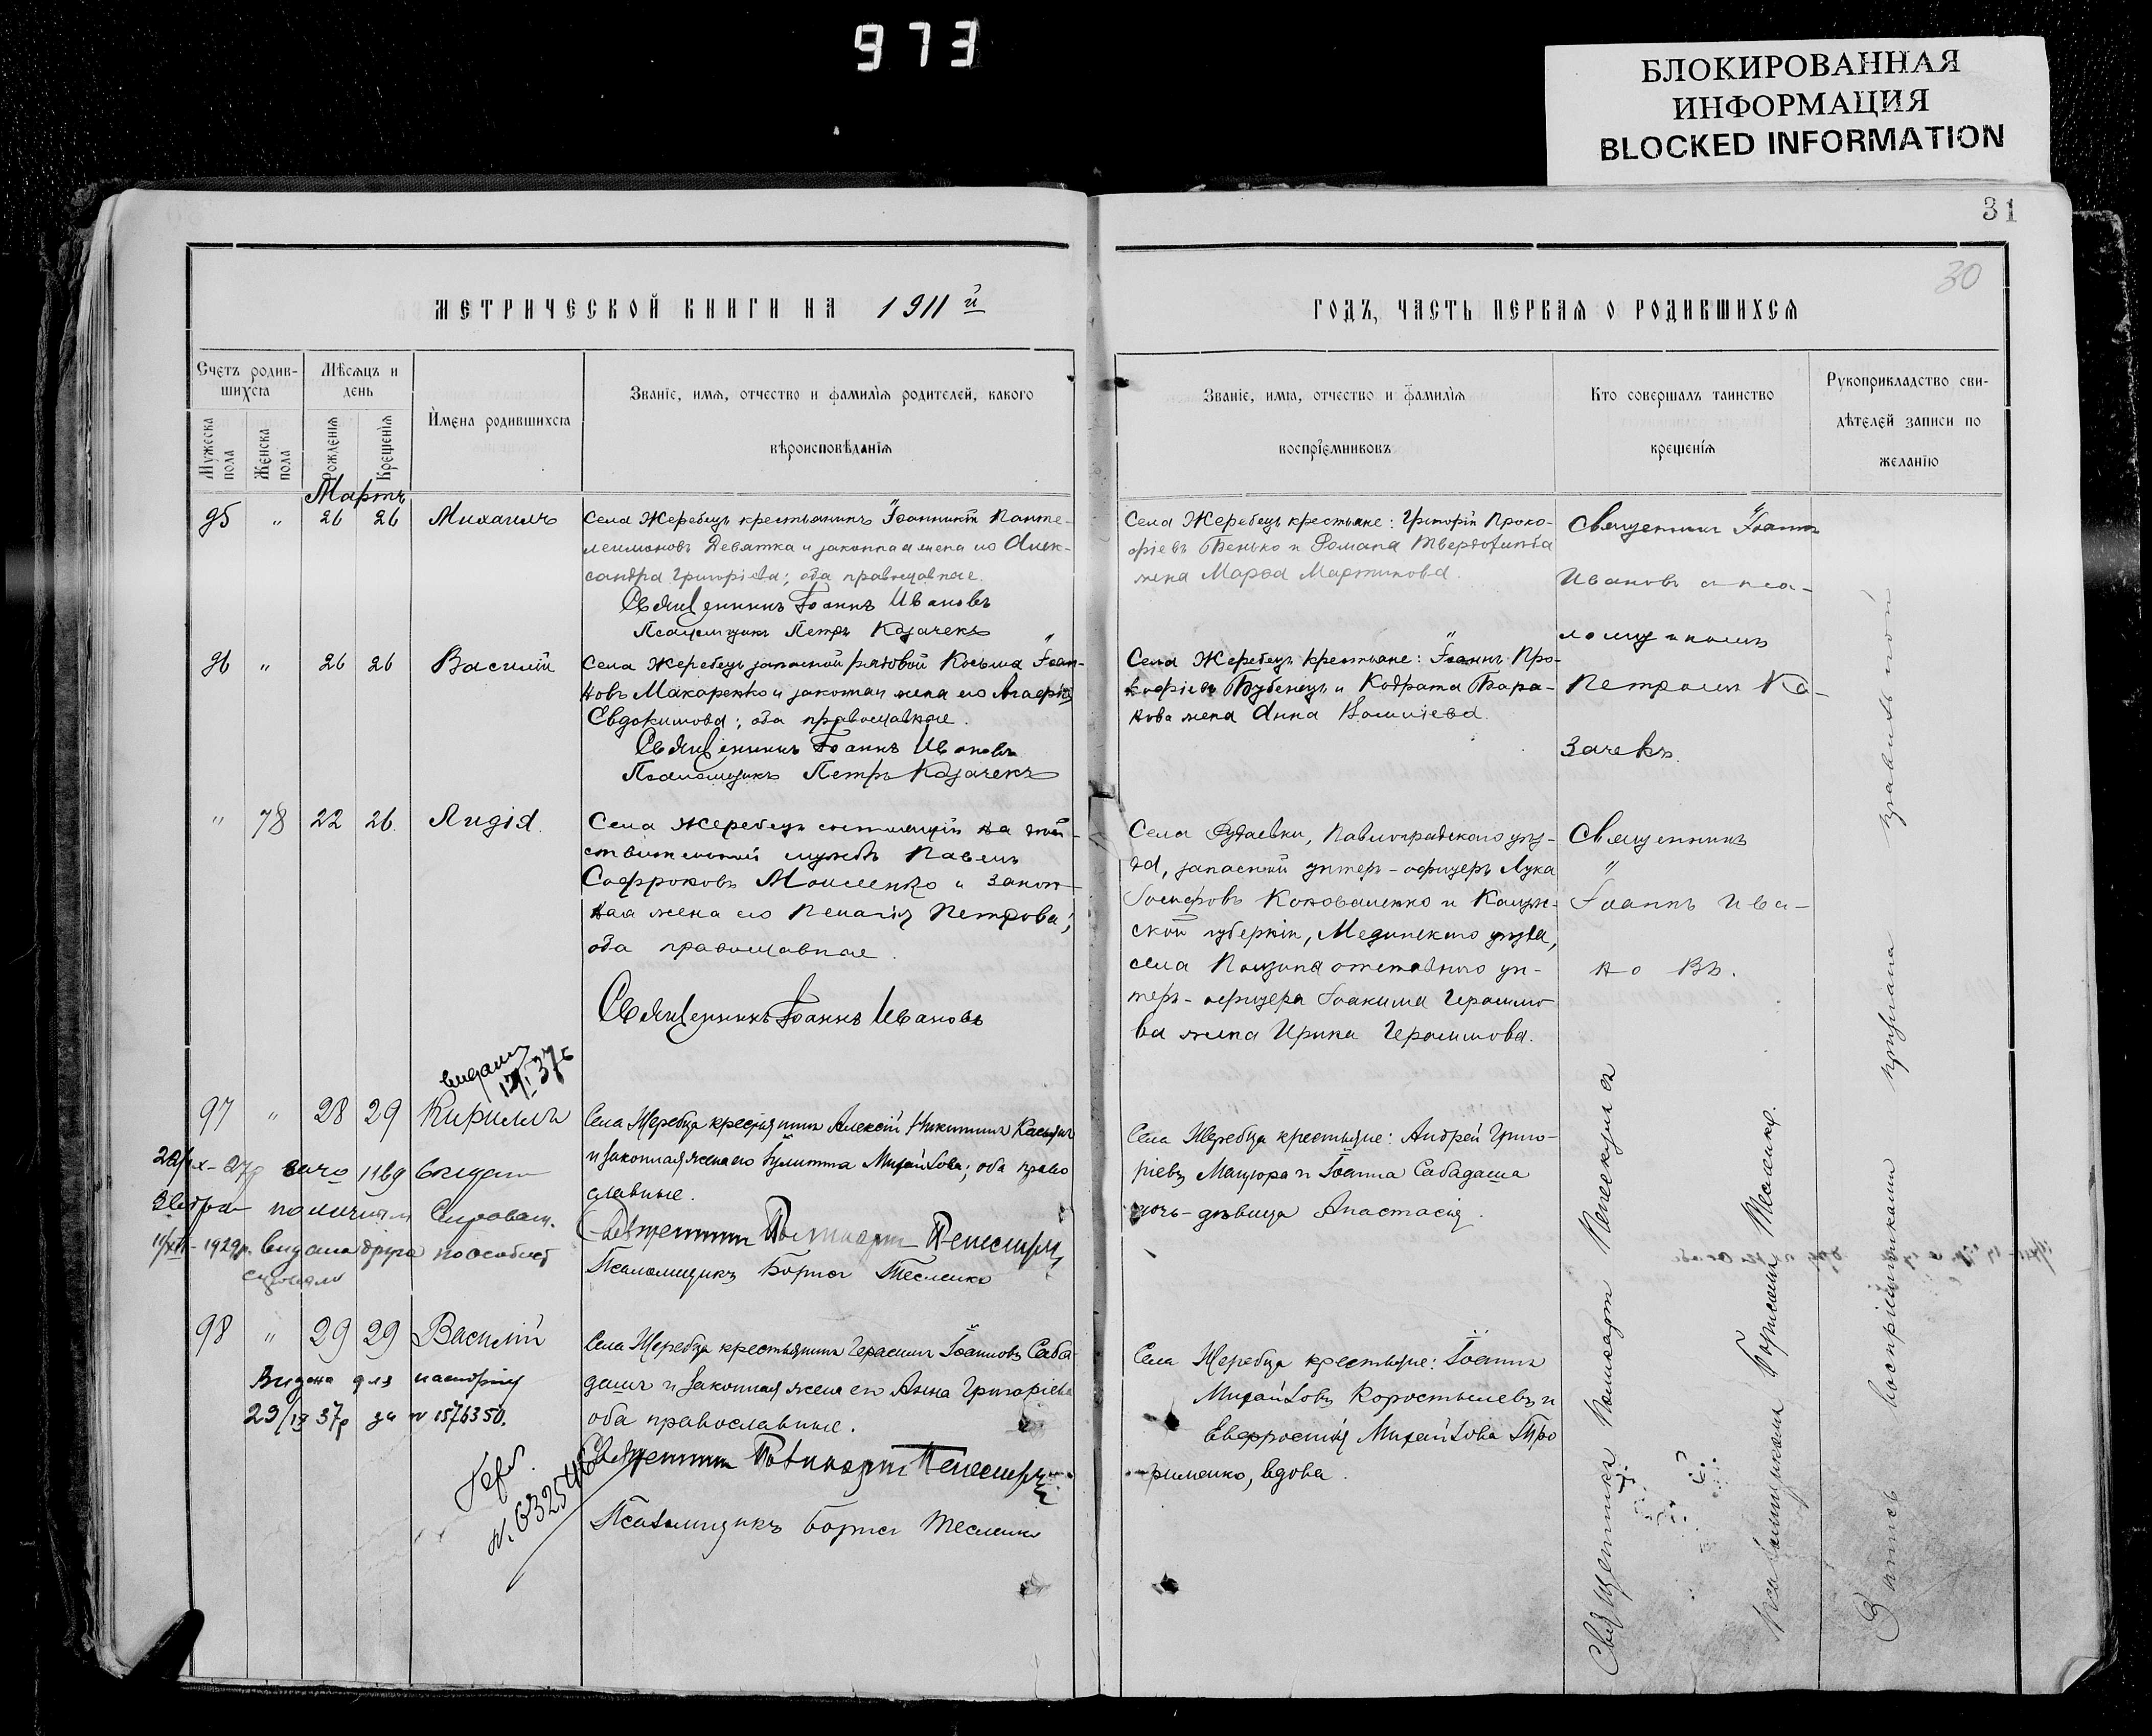 973
БЛОКИРОВАННАЯ
ИНФОРМАЦИЯ
BLOCKED INFORMATION
31
30
МЕТРИЧЕСКОЙ КНИГИ НА 1911й
ГОДЪ, ЧАСТЬ ПЕРВАЯ О РОДИВШИХСЯ
Счетъ родив-
шихся
Мужеска пола
Женска пола
Мѣсяцъ и
день
Рожденія
Крещенія
Имена родившихся
Званіе, имя, отчество и фамилія родителей, какого
вѣроисповѣданія
Званіе, имя, отчество и фамилія
воспріемниковъ
Кто совершалъ таинство
крещенія
Рукоприкладство сви-
дѣтелей записи по
желанію
Мартъ
95 " 26 26 Михаилъ
Села Жеребецъ крестьянинъ Іоанникій Панте-
леимоновъ Девятка и законная жена его Алек-
сандра Григоріева; оба православные.
Священникъ Іоаннъ Ивановъ
Псаломщикъ Петръ Казачекъ
Села Жеребецъ крестьяне: Григорій Проко-
фіевъ Бенько и Романа Твердохлѣба
жена Марѳа Мартинова.
Священник Іоанн
Ивановъ с пса-
ломщикомъ
Петромъ Ка-
зачекъ.
96 " 26 26 Василій
Села Жеребецъ запасной рядовой Косьма Іоан-
новъ Макаренко и законная жена его Агафія
Евдокимова; оба православные.
Священникъ Іоаннъ Ивановъ
Псаломщикъ Петръ Казачекъ
Села Жеребецъ крестьяне: Іоаннъ Про-
кофіевъ Бубенецъ и Кодрата Бара-
нова жена Анна
" 78 22 26. Лидія.
Села Жеребецъ состоящій на дѣй-
ствительной службѣ Павелъ
Софроновъ Моисеенко и закон-
ная жена его Пелагія Петрова;
оба православные.
Священникъ Іоаннъ Ивановъ
Села Павлоградскаго уѣз-
да, запасной унтеръ-офицеръ Лука
Іосифовъ Коноваленко и Калуж-
ской губерніи, Медынскаго уѣзда,
села отставного ун-
теръ-офицера Іоакима Герасимо-
ва жена Ирина Герасимова.
Священникъ
Іоаннъ Ива-
но въ.
97 " 28 29 Кириллъ
Села Жеребца крестьянинъ Алексій Никитинъ
и законная жена его Іулитта Михайлова; оба право
славные.
Псаломщикъ Борисъ Тесленко
Села Жеребца крестьяне: Андрей Григо-
ріевъ Мацюра и Іоанна Сабадаша
дочь-дѣвица Анастасія.
11/XII-1929р. видана друга
98 " 29 29 Василій
Села Жеребца крестьянинъ Герасимъ Іоанновъ Саба
дашъ и законная жена его Анна Григоріева
оба православные.
Псаломщикъ Борисъ Тесленко
Села Жеребца крестьяне: Іоаннъ
Михайловъ Коростылевъ и
Евфросинія Михайлова Тро
фименко, вдова.
Видана для паспорта
37р за № 1576350.